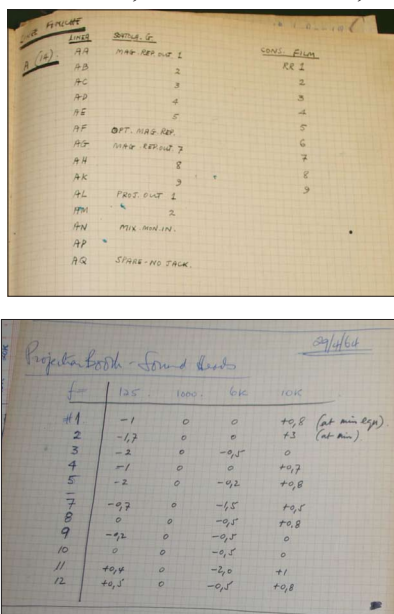 LINEA SONTEC. G CONS. FILM
A (14). AA MAG. REP. OUT 1 RR 1
AB 2 2
AC 3 3
AD 4 4
AE 5 5
AF OPT. MAG. REP. 6
AG MAG REP. OUT. 7 7
AH 8 8
AK 9 9
AL PROJ. OUT 1
AM 2
AN MIX. MON. IN.
AP
AQ SPARE - NO JACK.
29/4/64
Projection Booth - Sound Heads
f- 125. 1000. 6K 10K
#1 -1 0 0 +0,8 (at min eqn).
2 -1,7 0 0 +3 (at min)
3 -2 0 -0,5 0
4 -1 0 0 +0,7
5 -2 0 -0,2 +0,8
-
7 -0,7 0 -1,5 +0,5
8 0 0 -0,5 +0,8
9 -0,2 0 -0,5 0
10 0 0 -0,5 0
11 +0,4 0 -2,0 +1
12 +0,5 0 -0,5 +0,8